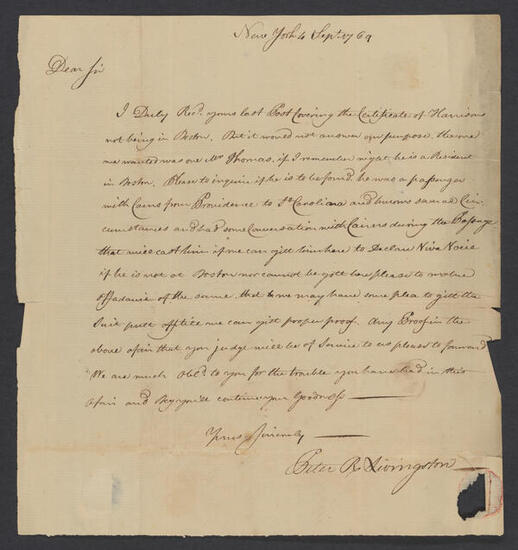 New York 4 Sept. 1769
Dear Sir
I Duly Recd. yours last Post Covering the Certificate of Harrison
not being in Boston. But it would not answer our purpose, the one
we wanted was one Mr Thomas, if I remember right he is a Resident
in Boston. Please to inquire if he is to be found. he was a passenger
with Cairns from Providence to So. Carolina and knows several Cir-
cumstances and had some Conversation with Cairns during the Passage
that will cast him if we can gitt him here to Declare Viva Voice
if he is not at Boston nor cannot be gott here please to
affadavie of the same. that we may have some plea to gitt the
Suit putt off till we can gist proper proof. Any Proof in the
above afair that you judge will be of Service to us please to forward
We are much Obld. to you for the trouble you have had in this
afair and Beg you'll continue your Goodness
Yours Sincerely
Peter R Livingston